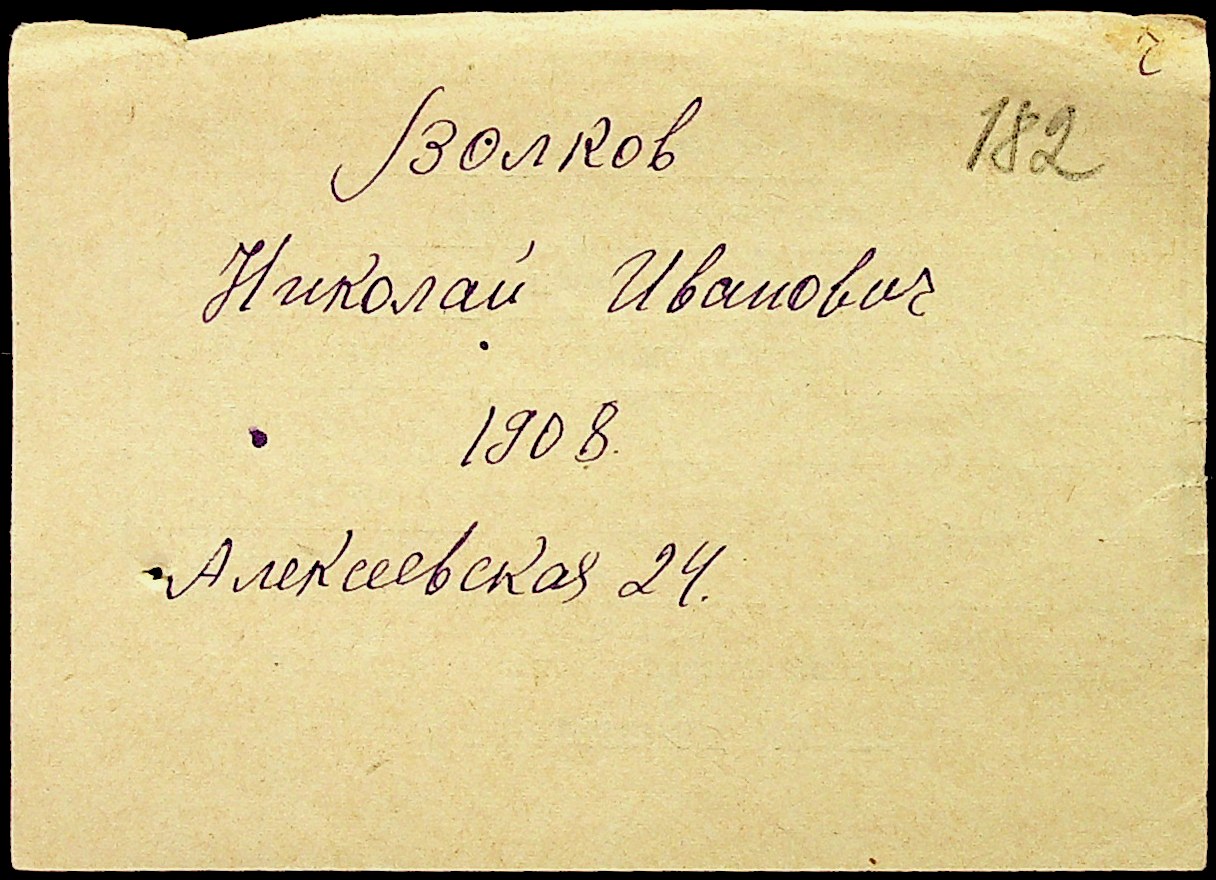 182
Волков
Николай Иванович
1908.
Алексеевская 24.